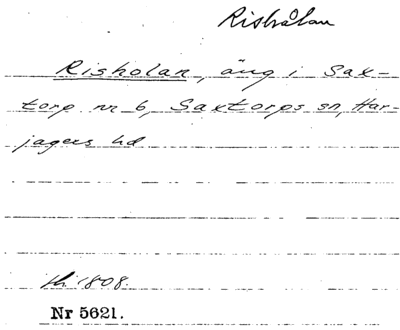 Rishålan
Risholan, äng i Sax-
torp nr 6, Saxtorps sn, Har-
jagers hd
lh 1808.
Nr 5621.